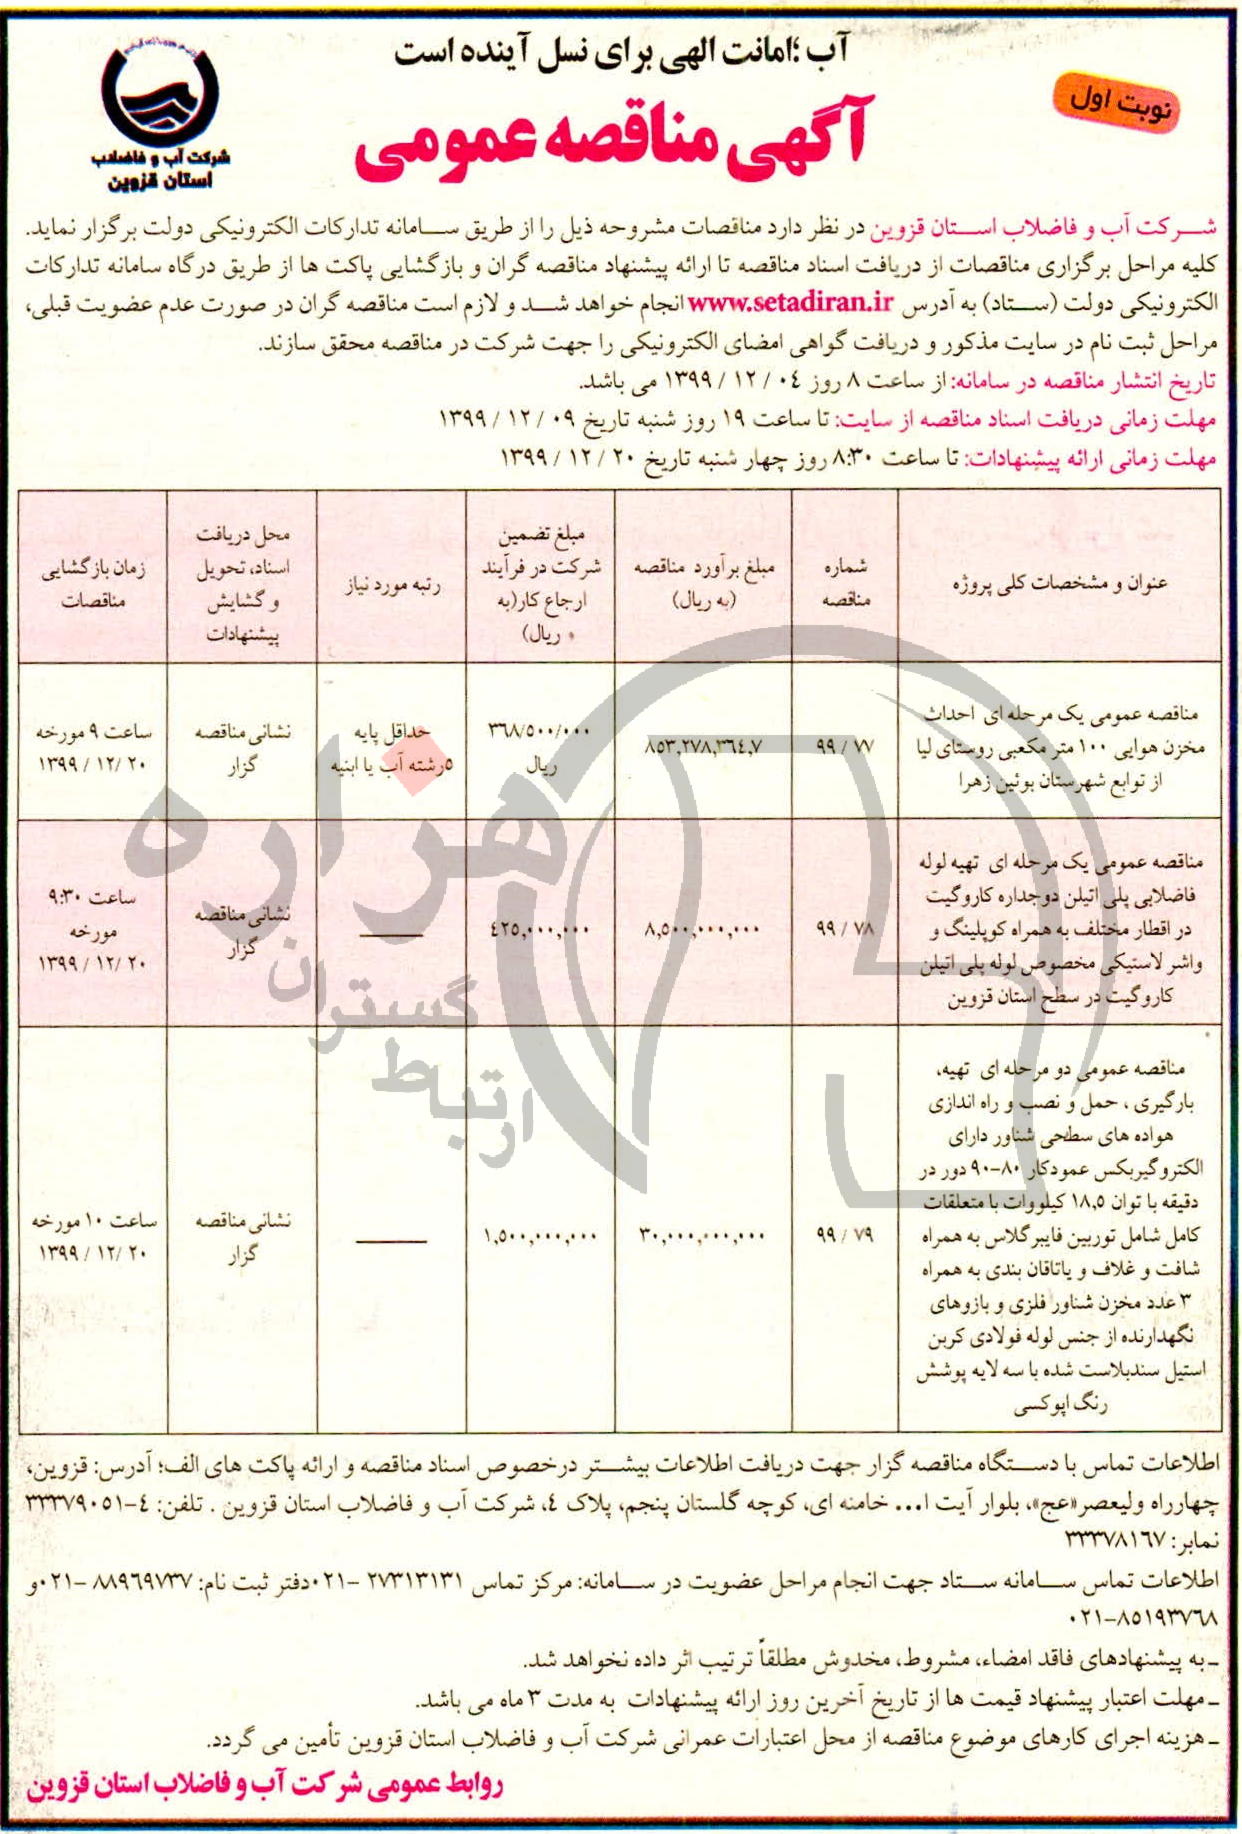 آب ؛امانت الهی برای نسل آینده است
نوبت اول
آگهی مناقصه عمومی
شرکت آب و فاضلاب
استان قزوین
شرکت آب و فاضلاب استان قزوین در نظر دارد مناقصات مشروحه ذیل را از طریق سامانه تدارکات الکترونیکی دولت برگزار نماید.
کلیه مراحل برگزاری مناقصات از دریافت اسناد مناقصه تا ارائه پیشنهاد مناقصه گران و بازگشایی پاکت ها از طریق درگاه سامانه تدارکات
الکترونیکی دولت (ستاد) به آدرس www.setadiran.ir انجام خواهد شد و لازم است مناقصه گران در صورت عدم عضویت قبلی،
مراحل ثبت نام در سایت مذکور و دریافت گواهی امضای الکترونیکی را جهت شرکت در مناقصه محقق سازند.
تاریخ انتشار مناقصه در سامانه: از ساعت ۸ روز ۰۴ / ۱۲ / ۱۳۹۹ می باشد.
مهلت زمانی دریافت اسناد مناقصه از سایت: تا ساعت ۱۹ روز شنبه تاریخ ۰۹ / ۱۲ / ۱۳۹۹
مهلت زمانی ارائه پیشنهادات: تا ساعت ۸:۳۰ روز چهار شنبه تاریخ ۲۰ / ۱۲ / ۱۳۹۹
عنوان و مشخصات کلی پروژه
شماره
مناقصه
مبلغ برآورد مناقصه
(به ریال)
مبلغ تضمین
شرکت در فرآیند
ارجاع کار(به
ریال)
رتبه مورد نیاز
محل دریافت
اسناد، تحویل
و گشایش
پیشنهادات
زمان بازگشایی
مناقصات
مناقصه عمومی یک مرحله ای احداث
مخزن هوایی ۱۰۰ متر مکعبی روستای لیا
از توابع شهرستان بوئین زهرا
۹۹ / ۷۷
۸۵۳,۲۷۸,۳٦٤,۷
۳٦۸/۵۰۰/۰۰۰
ریال
حداقل پایه
۵رشته آب یا ابنیه
نشانی مناقصه
گزار
ساعت ۹ مورخه
۲۰ /۱۲ / ۱۳۹۹
مناقصه عمومی یک مرحله ای تهیه لوله
فاضلابی پلی اتیلن دوجداره کاروگیت
در اقطار مختلف به همراه کوپلینگ و
واشر لاستیکی مخصوص لوله پلی اتیلن
کاروگیت در سطح استان قزوین
۹۹ / ۷۸
۸,۵۰۰,۰۰۰,۰۰۰
٤۲۵,۰۰۰,۰۰۰
نشانی مناقصه
گزار
ساعت ۹:۳۰
مورخه
۲۰ /۱۲ / ۱۳۹۹
مناقصه عمومی دو مرحله ای تهیه،
بارگیری ، حمل و نصب و راه اندازی
هواده های سطحی شناور دارای
الکتروگیربکس عمودکار ۸۰-۹۰ دور در
دقیقه با توان ۱۸,۵ کیلووات با متعلقات
کامل شامل توربین فایبرگلاس به همراه
شافت و غلاف و یاتاقان بندی به همراه
۳ عدد مخزن شناور فلزی و بازوهای
نگهدارنده از جنس لوله فولادی کربن
استیل سندبلاست شده با سه لایه پوشش
رنگ اپوکسی
۹۹ / ۷۹
۳۰,۰۰۰,۰۰۰,۰۰۰
۱,۵۰۰,۰۰۰,۰۰۰
نشانی مناقصه
گزار
ساعت ۱۰ مورخه
۲۰ /۱۲ / ۱۳۹۹
هزاره
گستران
ارتباط
اطلاعات تماس با دستگاه مناقصه گزار جهت دریافت اطلاعات بیشتر درخصوص اسناد مناقصه و ارائه پاکت های الف؛ آدرس: قزوین،
چهارراه ولیعصر«عج»، بلوار آیت ا... خامنه ای، کوچه گلستان پنجم، پلاک ٤، شرکت آب و فاضلاب استان قزوین . تلفن: ٤-۳۳۳۷۹۰۵۱
نمابر: ۳۳۳۷۸۱٦۷
اطلاعات تماس سامانه ستاد جهت انجام مراحل عضویت در سامانه: مرکز تماس ۲۷۳۱۳۱۳۱ -۰۲۱ دفتر ثبت نام: ۸۸۹٦۹۷۳۷ -۰۲۱ و
۸۵۱۹۳۷٦۸-۰۲۱
ـ به پیشنهادهای فاقد امضاء، مشروط، مخدوش مطلقاً ترتیب اثر داده نخواهد شد.
ـ مهلت اعتبار پیشنهاد قیمت ها از تاریخ آخرین روز ارائه پیشنهادات به مدت ۳ ماه می باشد.
ـ هزینه اجرای کارهای موضوع مناقصه از محل اعتبارات عمرانی شرکت آب و فاضلاب استان قزوین تأمین می گردد.
روابط عمومی شرکت آب و فاضلاب استان قزوین